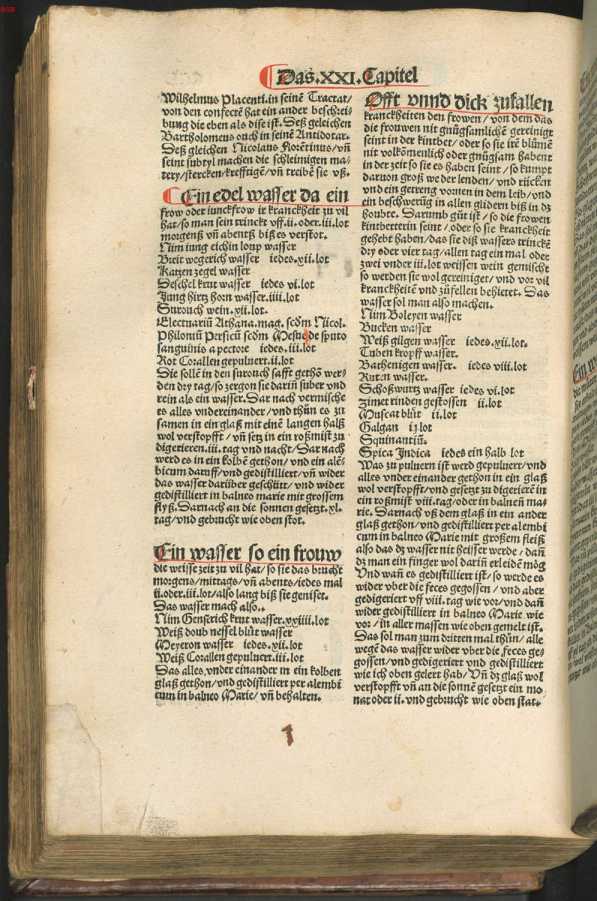 Das.XXI.Capitel
Wilhelmus Placenti.in seinē Tractat/
von den confecrē hat ein ander beschrei-
bung die eben als dise ist. Deß geleichen
Bartholomeus ouch in seinē Antidotar.
Deß gleichen Nicolaus florētinus/vñ
seint subtyl machen die schleimigen ma-
tery/stercken/kreffrigē/vñ treibē sie vß.
Ein edel wasser da ein
frow oder iunckfrow ir kranckheit zu vil
hat/so man sein trinckt vff.ii.oder.iii.lot
morgenß vñ abentß biß es verstot.
Nim iung eichin loup wasser
Breit wegerich wasser iedes.xii.lot
Katzen zegel wasser
Deschel krut wasser iedes vi.lot
Jung hirtz horn wasser.iiii.lot
Surouch wein.xii.lot.
Electuariū Athana.mag. scōm Nicol.
Philoniū Persicū scōm Mesue de sputo
sanguinis a pectore iedes.iii.lot
Rot Corallen gepuluert.ii.lot
Die sollē in den surouch safft gethō wer-
den dry tag/so zergon sie darin suber vnd
rein als ein wasser. Dar nach vermische
es alles vndereinander/vnd thün es zu
samen in ein glaß mit einē langen halß
wol verstopfft/vñ setz in ein roßmist zu
digerieren.iii.tag vnd nacht/Dar nach
werd es in ein kolbē gethon/vnd ein alē-
bicum daruff/vnd gedistilliert/vñ wider
das wasser darüber geschütt/vnd wider
gedistilliert in balneo marie mit grossem
flyß. Darnach an die sonnen gesetzt.xl.
tag/vnd gebrucht wie oben stot.
Ein wasser so ein frouw
die weisse zeit zu vil hat/so sie das brucht
morgens/mittags/vñ abents/iedes mal
ii.oder.iii.lot/also lang biß sie geniset.
Das wasser mach also.
Nim Genserich krut wasser.xxiiii.lot
Weiß doub nessel blüt wasser
Meyeron wasser iedes.xii.lot
Weiß Corallen gepuluert.iii.lot
Das alles vnder einander in ein kolben
glaß gethon/vnd gedistilliert per alembi
cum in balneo Marie/vñ behalten.
Offt vnnd dick zufallen
kranckheiten den frowen/von dem das
die frouwen nit gnügsamliche gereinigt
seint in der kintbet/oder so sie ire blümē
nit volkōmenlich oder gnügsam habent
in der zeit so sie es haben seint/so kumpt
daruon groß we der lenden/vnd rücken
vnd ein getreng vornen in dem leib/vnd
ein beschwerūg in allen glidern biß in dz
houbte. Darumb güt ist/so die frowen
kintbetterin seint/oder so sie kranckheit
gehebt haben/das sie diß wassers trinckē
dry oder vier tag/allen tag ein mal oder
zwei vnder iii.lot weissen wein gemischt
so werden sie wol gereiniget/vnd vor vil
kranckheitē vnd züfellen behietet. Das
wasser sol man also machen.
Nim Boleyen wasser
Bucken wasser
Weiß gilgen wasser iedes.xii.lot.
Tuben kropff wasser.
Bathenigen wasser. iedes viii.lot
Ruten wasser.
Schoßwurtz wasser iedes vi.lot
Zimet rinden gestossen ii.lot
Muscat blüt ii.lot
Galgan ij lot
Squinantiū.
Spica Indica iedes ein halb lot
Was zu puluern ist werd gepuluert/vnd
alles vnder einander gethon in ein glaß
wol verstopfft/vnd gesetzt zu digerierē in
ein roßmist viii.tag/oder in balneū ma-
rie. Darnach vß dem glaß in ein ander
glaß gethon/vnd gedistilliert per alembi
cum in balneo Marie mit großem fleiß
also das dz wasser nit heisser werde/dañ
dz man ein finger wol darin erleidē mög
Vnd wañ es gedistilliert ist/so werde es
wider vber die feces gegossen/vnd aber
gedigeriert vff viii.tag wie vor/vnd dañ
wider gedistilliert in balneo Marie wie
vor/in aller massen wie oben gemelt ist.
Das sol man zum dritten mal thün/alle
wegē das wasser wider vber die feces ge-
gossen/vnd gedigeriert vnd gedistilliert
wie ich oben gelert hab/Vñ dz glaß wol
verstopfft vñ an die sonnē gesetzt ein mo
nat oder ii.vnd gebrucht wie oben stat.